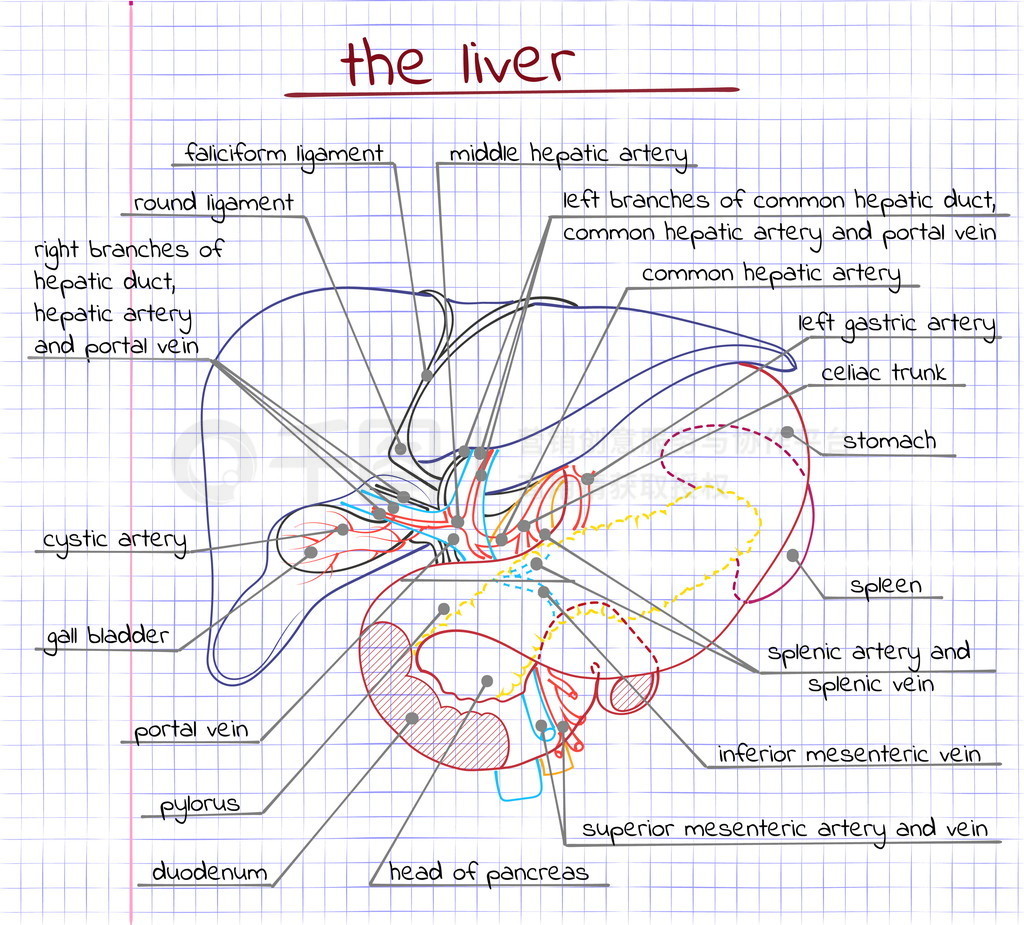 the liver
faliciform ligament
middle hepatic artery
round ligament
left branches of common hepatic duct,
common hepatic artery and portal vein
right branches of
hepatic duct,
hepatic artery
and portal vein
common hepatic artery
left gastric artery
celiac trunk
stomach
cystic artery
spleen
gall bladder
splenic artery and
splenic vein
portal vein
inferior mesenteric vein
pylorus
superior mesenteric artery and vein
duodenum
head of pancreas